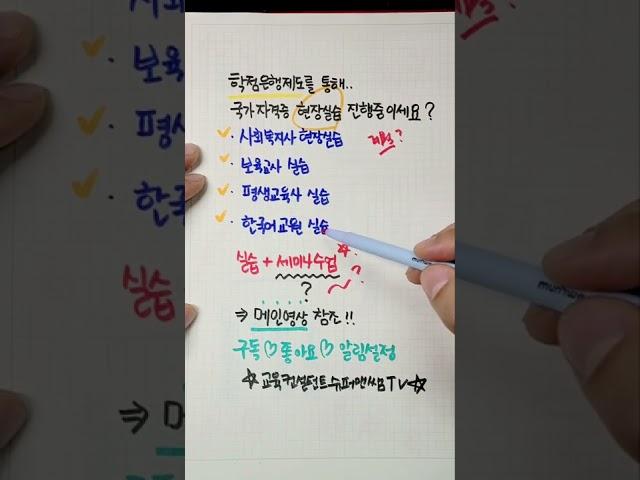 학점은행제도를 통해..
국가자격증 현장실습 진행중이세요?
· 사회복지사 현장실습
· 보육교사 실습
· 평생교육사 실습
· 한국어교원 실습
실습 + 세미나수업 ?
?
⇒ 메인영상 참조!!
구독♡좋아요♡알림설정
☆교육컨설턴트슈퍼맨쌤TV☆